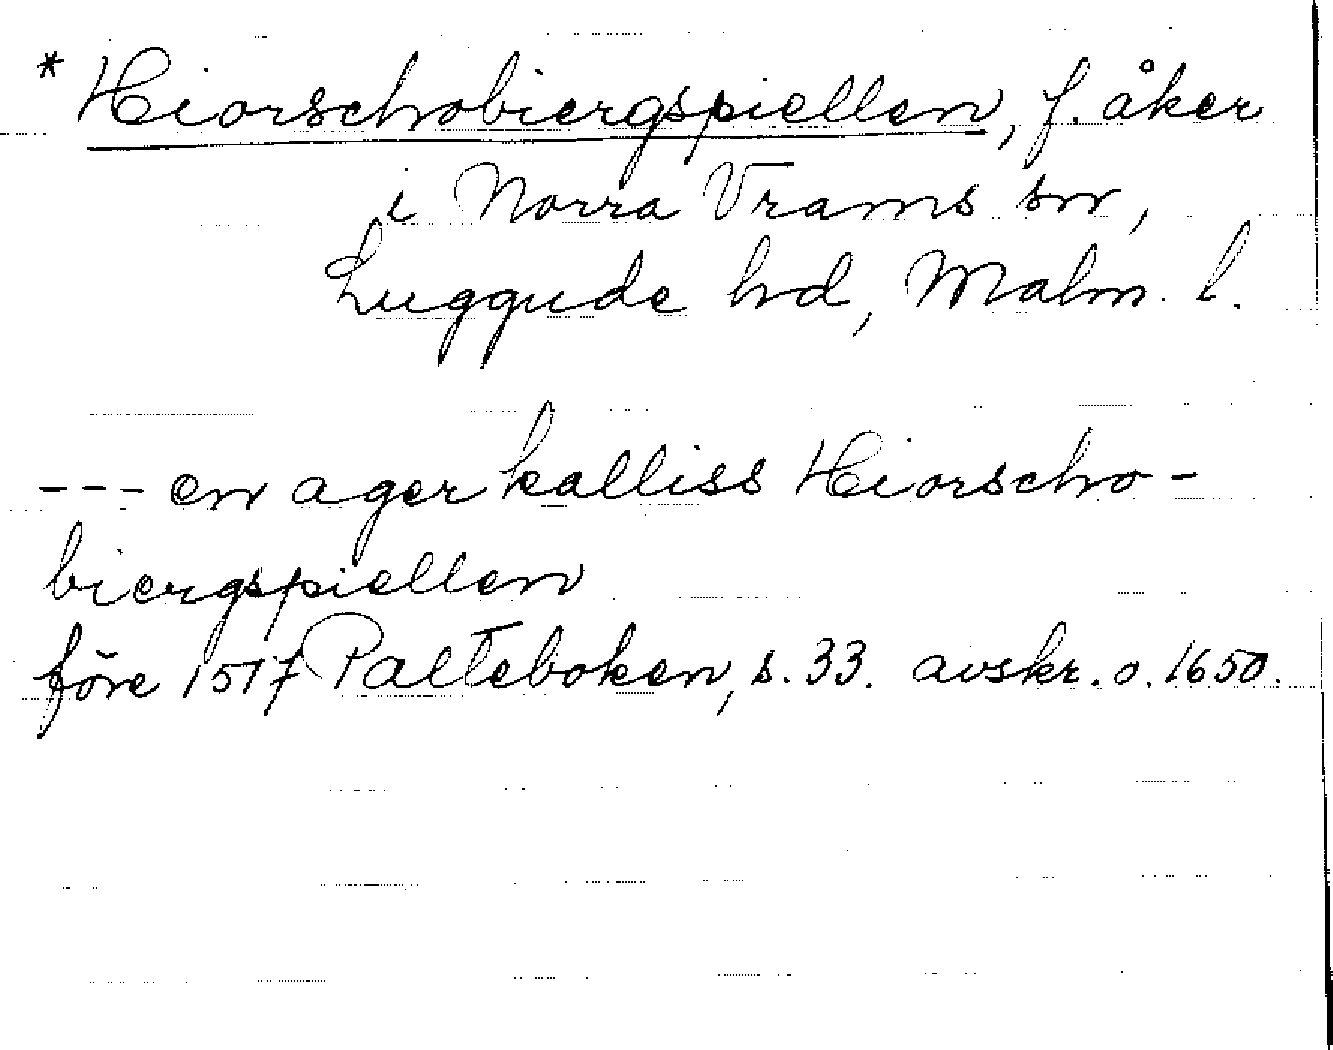 * Hiorschobiergspiellen, f. åker
i Norra Vrams sn,
Luggude hd, Malm. l.
--- en ager kalliss Hiorscho-
biergspiellen
före 1517 Palteboken, s. 33. avskr. o. 1650.